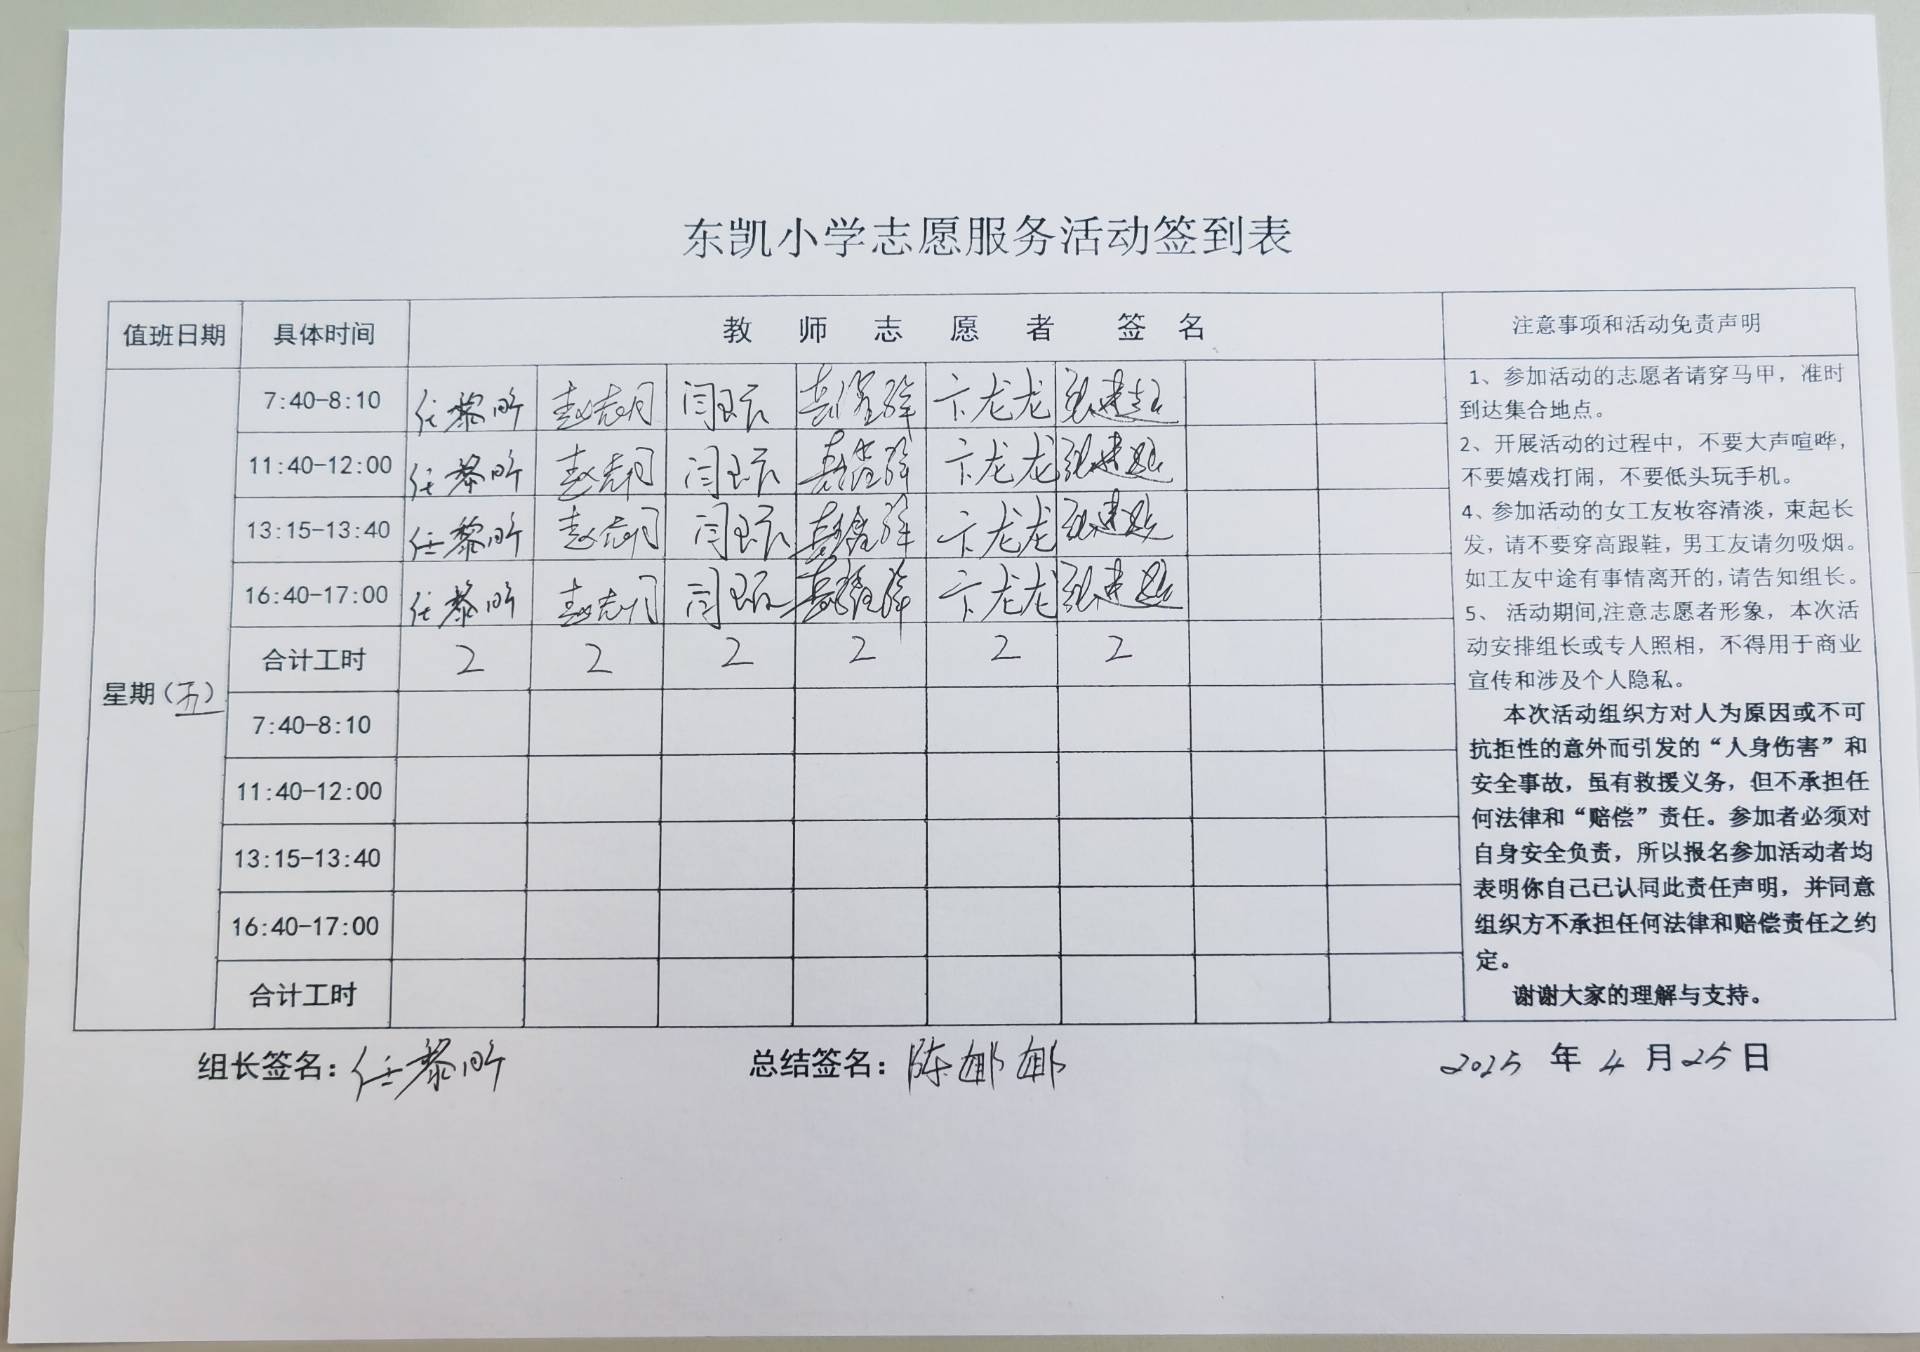 东凯小学志愿服务活动签到表
值班日期 具体时间 教师志愿者 签名 注意事项和活动免责声明
7:40-8:10 任黎昕 赵志朋 闫 卞龙龙 张建超
11:40-12:00 任黎昕 赵志朋 闫 卞龙龙 张建超
13:15-13:40 任黎昕 赵志朋 闫 卞龙龙 张建超
16:40-17:00 任黎昕 赵志朋 闫 卞龙龙 张建超
合计工时 2 2 2 2 2 2
星期(五)
7:40-8:10
11:40-12:00
13:15-13:40
16:40-17:00
合计工时
1、参加活动的志愿者请穿马甲，准时
到达集合地点。
2、开展活动的过程中，不要大声喧哗，
不要嬉戏打闹，不要低头玩手机。
4、参加活动的女工友妆容清淡，束起长
发，请不要穿高跟鞋，男工友请勿吸烟。
如工友中途有事情离开的，请告知组长。
5、 活动期间,注意志愿者形象，本次活
动安排组长或专人照相，不得用于商业
宣传和涉及个人隐私。
本次活动组织方对人为原因或不可
抗拒性的意外而引发的“人身伤害”和
安全事故，虽有救援义务，但不承担任
何法律和“赔偿”责任。参加者必须对
自身安全负责，所以报名参加活动者均
表明你自己已认同此责任声明，并同意
组织方不承担任何法律和赔偿责任之约
定。
谢谢大家的理解与支持。
组长签名：任黎昕 总结签名：陈邮邮 2025 年 4 月 25 日